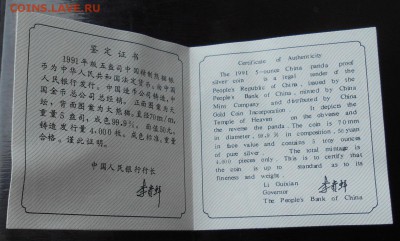 COINS.LAVE.RU
鉴定证书
1991年版五盎司中国精制熊猫银
币为中华人民共和国法定货币，由中国
人民银行发行。中国造币公司铸造，中
国金币总公司总经销。正面图案为天
坛，背面图案为大熊猫，直径70m/m，
重量5盎司，成色99.9%，面值50元。
铸造发行量4,000枚，成色标准，重量
合格。谨此证明。
中国人民银行行长
Certificate of Authenticity
The 1991 5-ounce China panda proof
silver coin is a legal tender of the
People's Republic of China, issued by the
People's Bank of China, minted by China
Mint Company and distributed by China
Gold Coin Incorporation. It depicts the
Temple of Heaven on the obverse and
the reverse the panda. The coin is 70mm
in diameter, 99.9% in composition, 50yuan
in face value and contains 5 troy ounces
of pure silver. The total mintage is
4,000 pieces only. This is to certify that
the coin is up to standard as to its
fineness and weight.
Li Guixian
Governor
The People's Bank of China